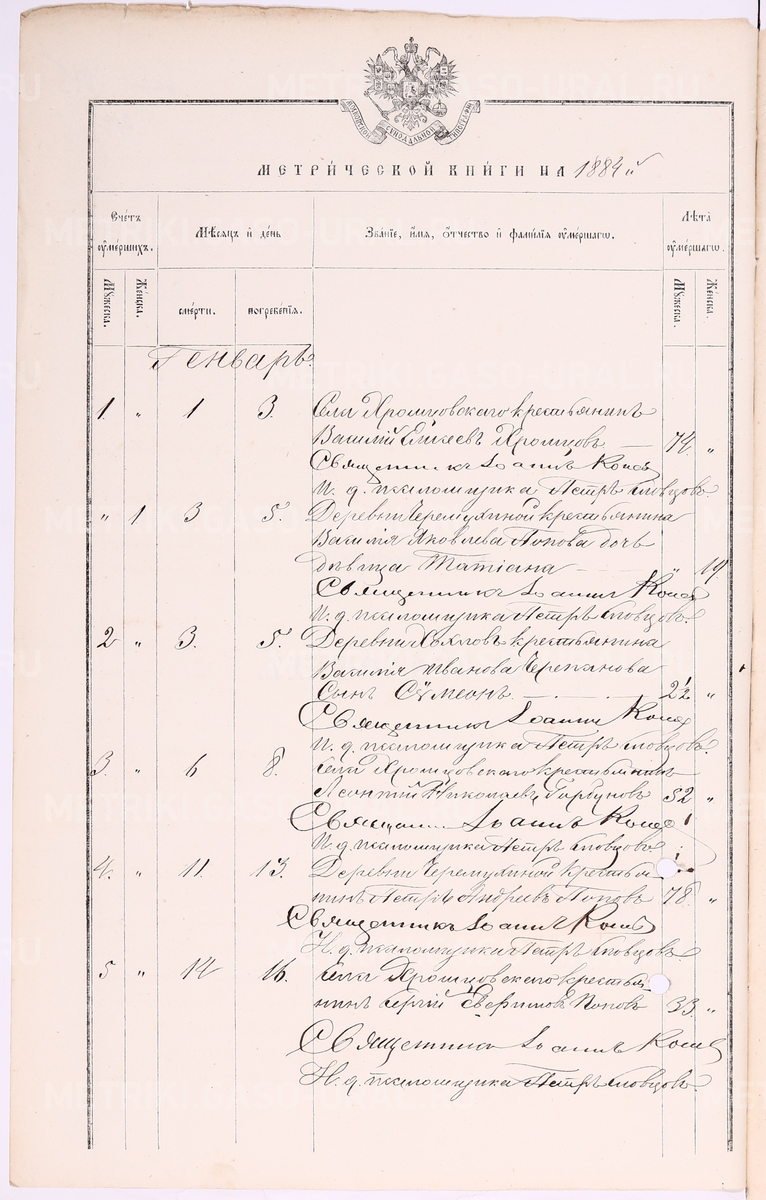 МЕТРИЧЕСКОЙ КНИГИ НА 1884 й
Счетъ умершихъ.
Мѣсяцъ и день
Званіе, имя, отчество и фамилія умершаго.
Лѣта умершаго.
Мужеска.
Женска.
смерти.
погребенія.
Мужеска.
Женска.
Генварь.
1. " 1 3. Села Хромцовскаго крестьянинъ
Василій Хромцовъ — 74. "
Священникъ Іоаннъ
И. д. псаломщика Петръ Словцовъ.
" 1 3 5. Деревни Черемухиной крестьянина
Василія Яковлева Попова дочь
дѣвица Татіана — " 19.
Священникъ Іоаннъ
И. д. псаломщика Петръ Словцовъ.
2 " 3. 5. Деревни крестьянина
Василія Иванова Черепанова
Сынъ Сѵмеонъ. — 2½ "
Священникъ Іоаннъ
И. д. псаломщика Петръ Словцовъ.
3. " 6 8. Села Хромцовскаго крестьянинъ
Леонтій Николаевъ Горбуновъ 52 "
Священникъ Іоаннъ
И. д. псаломщика Петръ Словцовъ.
4. " 11. 13. Деревни Черемухиной крестья-
нинъ Петръ Андреевъ Поповъ 78. "
Священникъ Іоаннъ
И. д. псаломщика Петръ Словцовъ.
5 " 14 16. Села Хромцовскаго крестья-
нинъ Сергій Евфимовъ Поповъ 33. "
Священникъ Іоаннъ
И. д. псаломщика Петръ Словцовъ.